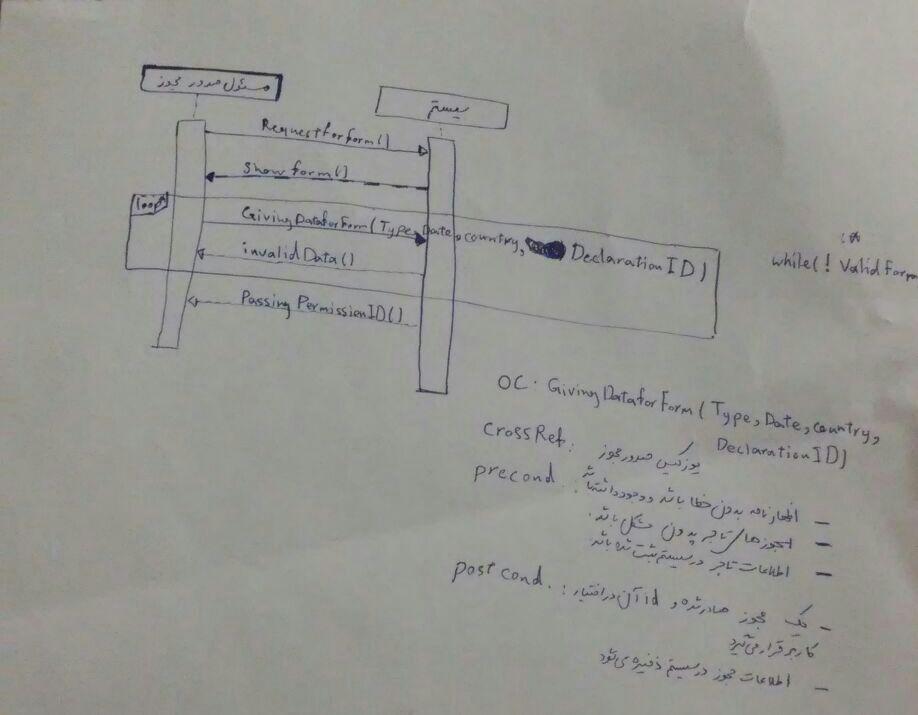 مسئول صدور مجوز
سیستم
RequestforForm()
Show form()
loop
GivingDataforForm(Type, Date, country, DeclarationID)
invalidData()
while(! ValidForm
Passing PermissionID()
OC: GivingDataforForm(Type, Date, country,
DeclarationID)
crossRef: یوزکیس صدور مجوز
precond:
- اظهارنامه بدون خطا باشد و وجود داشته باشد
- مجوزهای تاجر بدون مشکل باشد.
- اطلاعات تاجر در سیستم ثبت شده باشد
postcond.:
- یک مجوز صادر شده و id آن در اختیار
کاربر قرار می‌گیرد
- اطلاعات مجوز در سیستم ذخیره می‌شود